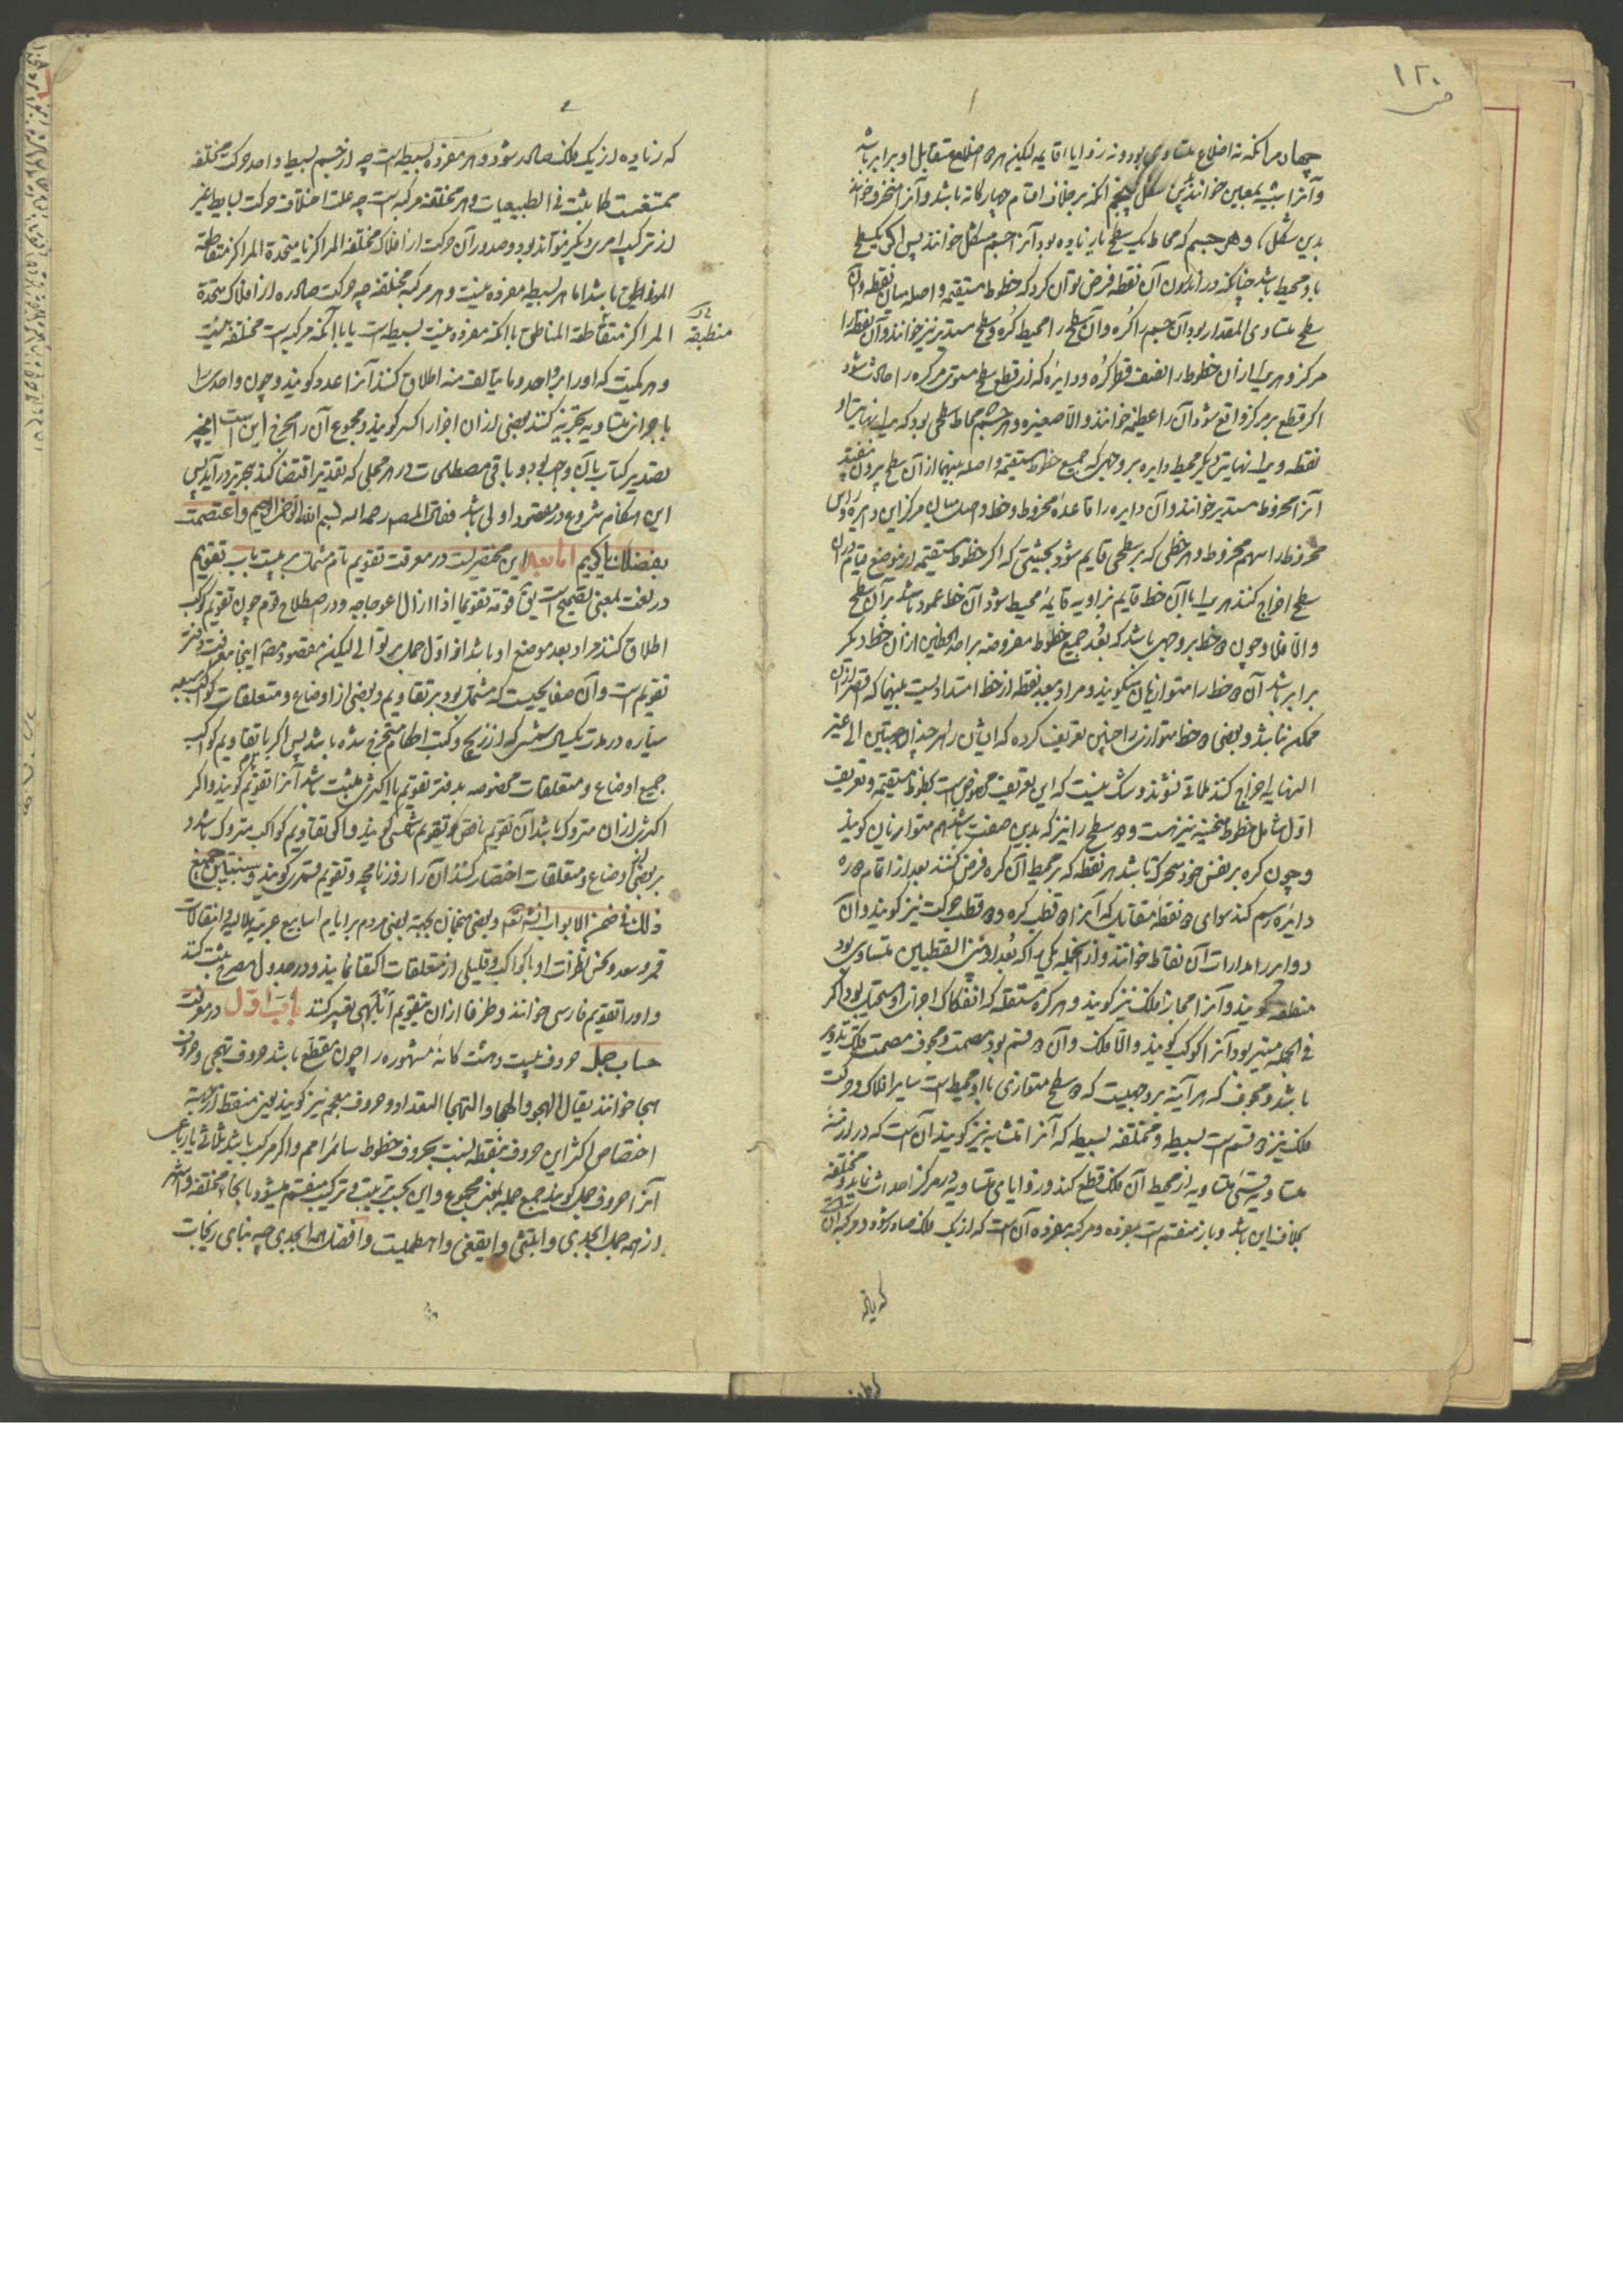 ۱۲۰
چهارم آنکه نه اضلاع متساوی بود و نه زوایا قایمه لیکن هر دو اضلاع متقابل او برابر باشد
و آنرا شبیه بمعین خوانند بدین شکل پنجم آنکه بر خلاف اقسام چهارکانه باشد و آنرا منحرف خوانند
بدین شکل و هر جسم که محاط یک سطح یا زیاده بود آنرا جسم مشکل خوانند پس اکر یک سطح
باو محیط باشد چنانکه در اندرون آن نقطه فرض توان کرد که خطوط مستقیمه واصله میان نقطه و آن
سطح متساوی المقدار بود آن جسم را کره و آن سطح را محیط کره و سطح مستدیر نیز خوانند و آن نقطه را
مرکز و هر یک از آن خطوط را نصف قطر کره و دایره که از قطع سطح مستوی مر کره را حادث شود
اکر قطع بر مرکز واقع شود آن را عظیمه خوانند و الا صغیره و هر جسم محاط سطحی بود که یک نهایت او
نقطه و یک نهایت دیکر محیط دایره بر وجهی که جمیع خطوط مستقیمه واصله بینهما از آن سطح بیرون نیفتد
آنرا مخروط مستدیر خوانند و آن دایره را قاعده مخروط و خط واصل میان مرکز این دایره و راس
مخروط را سهم مخروط و هر خطی که بر سطحی قایم شود بحیثیتی که اکر خطوط مستقیمه از موضع قیام در آن
سطح اخراج کنند هر یک با آن خط قایم بزاویه قایمه محیط شود آن خط عمود باشد بر آن سطح
و الا فلا و چون دو خط بر وجهی باشد که بعد جمیع خطوط مفروضه بر احد الخطین از آن خط دیکر
برابر باشد آن دو خط را متوازیان میکویند و مراد ببعد نقطه از خط امتدادیست بینهما که اقصر از آن
ممکن نباشد و بعضی دو خط متوازی را چنین تعریف کرده که ایشان را هر چند در جهتین الی غیر
النهایه اخراج کنند ملاقی نشوند و شک نیست که این تعریف مخصوص است بخطوط مستقیمه و تعریف
اول شامل خطوط منحنیه نیز هست و دو سطح را نیز که بدین صفت باشند هم متوازیان کویند
و چون کره بر نفس خود متحرک باشد هر نقطه که بر محیط آن کره فرض کنند بعد از اتمام دوره
دایره رسم کند سوای دو نقطه متقابل که آنرا دو قطب کره و دو قطب حرکت نیز کویند و آن
دوایر را مدارات آن نقاط خوانند و از آنجمله یکی را که بعد او من القطبین متساوی بود
منطقه کویند و آنرا مجازا فلک نیز کویند و هر کره مستقله که انفکاک اجزای او مستحیل بود اکر
فی الجمله مستنیر بود آنرا کوکب کویند و الا فلک و آن دو قسم بود مصمت و مجوف مصمت فلک تدویر
باشد و مجوف که هر آینه بر وجهیست که دو سطح متوازی باو محیط است سایر افلاک و حرکت
فلک نیز دو قسم است بسیطه و مختلفه بسیطه که آنرا متشابه نیز کویند آن است که در ازمنه
متساویه قسی متساویه از محیط آن فلک قطع کند و زوایای متساویه در مرکز احداث نماید و مختلفه
بخلاف این باشد و باز منقسم است بمفرده و مرکبه مفرده آن است که از یک فلک صادر شود و مرکبه آن
که زیاده
که زیاده از یک فلک صادر شود و هر مفرده بسیطه است چه از جسم بسیط واحد حرکت مختلفه
ممتنعست کما ثبت فی الطبیعیات و هر مختلفه مرکبه است چه علت اختلاف حرکت بسایط غیر
از ترکیب امری دیکر نتواند بود و صدور آن حرکت از افلاک مختلفة المراکز یا متحدة المراکز متقاطعة
المناطق باشد اما هر بسیطه مفرده نیست و هر مرکبه مختلفه چه حرکت صادره از افلاک متحدة
المراکز متقاطعة المناطق باآنکه مفرده نیست بسیطه است یا باآنکه مرکبه است مختلفه نیست
منطبقة
و هر کمیت که او را بر واحد و ما یتالف منه اطلاق کنند آنرا عدد کویند و چون واحد را
باجزای متساویه تجزیه کنند بعضی از آن اجزا را کسر کویند و مجموع آن را مخرج این است آنچه
تصدیر کتاب بآن واجب بود و باقی مصطلحات در هر محلی که تقدیر اقتضا کند بتحریر در آید پس
این هنکام شروع در مقصود اولی باشد فقال المصنف رحمه الله بسم الله الرحمن الرحیم و اعتصمت
بفضلک یا کریم اما بعد این مختصریست در معرفت تقویم تام مشتمل بر بیست باب تقویم
در لغت بمعنی تصحیح است یقال قومته تقویما اذا ازال اعوجاجه و در اصطلاح قوم چون تقویم کوکب
اطلاق کنند مراد بعد موضع او باشد از اول حمل بر توالی لیکن مقصود مصنف اینجا معرفت دفتر
تقویم است و آن صفایحیست که مشتمل بود بر تقاویم و بعضی از اوضاع و متعلقات کواکب سبعه
سیاره در مدت یکسال شمسی که از زیج و کتب احکام مستخرج شده باشد پس اکر با تقاویم کواکب
جمیع اوضاع و متعلقات مخصوصه بدفتر تقویم یا اکثرش مثبت باشد آنرا تقویم تام کویند و اکر
اکثرش از آن متروک باشد آن تقویم ناقص و تقویم شمسی کویند و اکر تقاویم کواکب متروک باشد و
بر بعضی از اوضاع و متعلقات اختصار کنند آن را روزنامچه و تقویم قمری کویند و سنبین جمیع
ذلک فی ضمن الابواب انشاء الله تعالی و بعضی منجمان بجهة بعضی مردم بر ایام اسابیع عربیه هلالیه و انتقالات
قمر و سعد و نحس نظرات او با کواکب و قلیلی از متعلقات اکتفا نمایند و در جدول مصرح ثبت کنند
و او را تقویم فارسی خوانند و ظرفا از آن بتقویم ابلهی تعبیر کنند باب اول در معرفت
حساب جمل حروف بیست و هشت کانه مشهوره را چون مقطع باشد حروف تهجی و حروف
هجا خوانند یقال الهجو و الهجاء و التهجا التعداد و حروف معجم نیز کویند یعنی منقط از جهة
اختصاص اکثر این حروف بنقطه بنسبت بحروف خطوط سائر امم و اکر مرکب باشد ثلاثی یا رباعی
آنرا حروف جمل کویند جمع جمله بمعنی مجموع و این بحسب ترتیب و ترکیب منقسم میشود بانحاء مختلفه و اشهر
از همه جمل ابجدی و ابتثی و ایقغی و اهطمیست و افضل همه ابجدی چه بنای زیجات